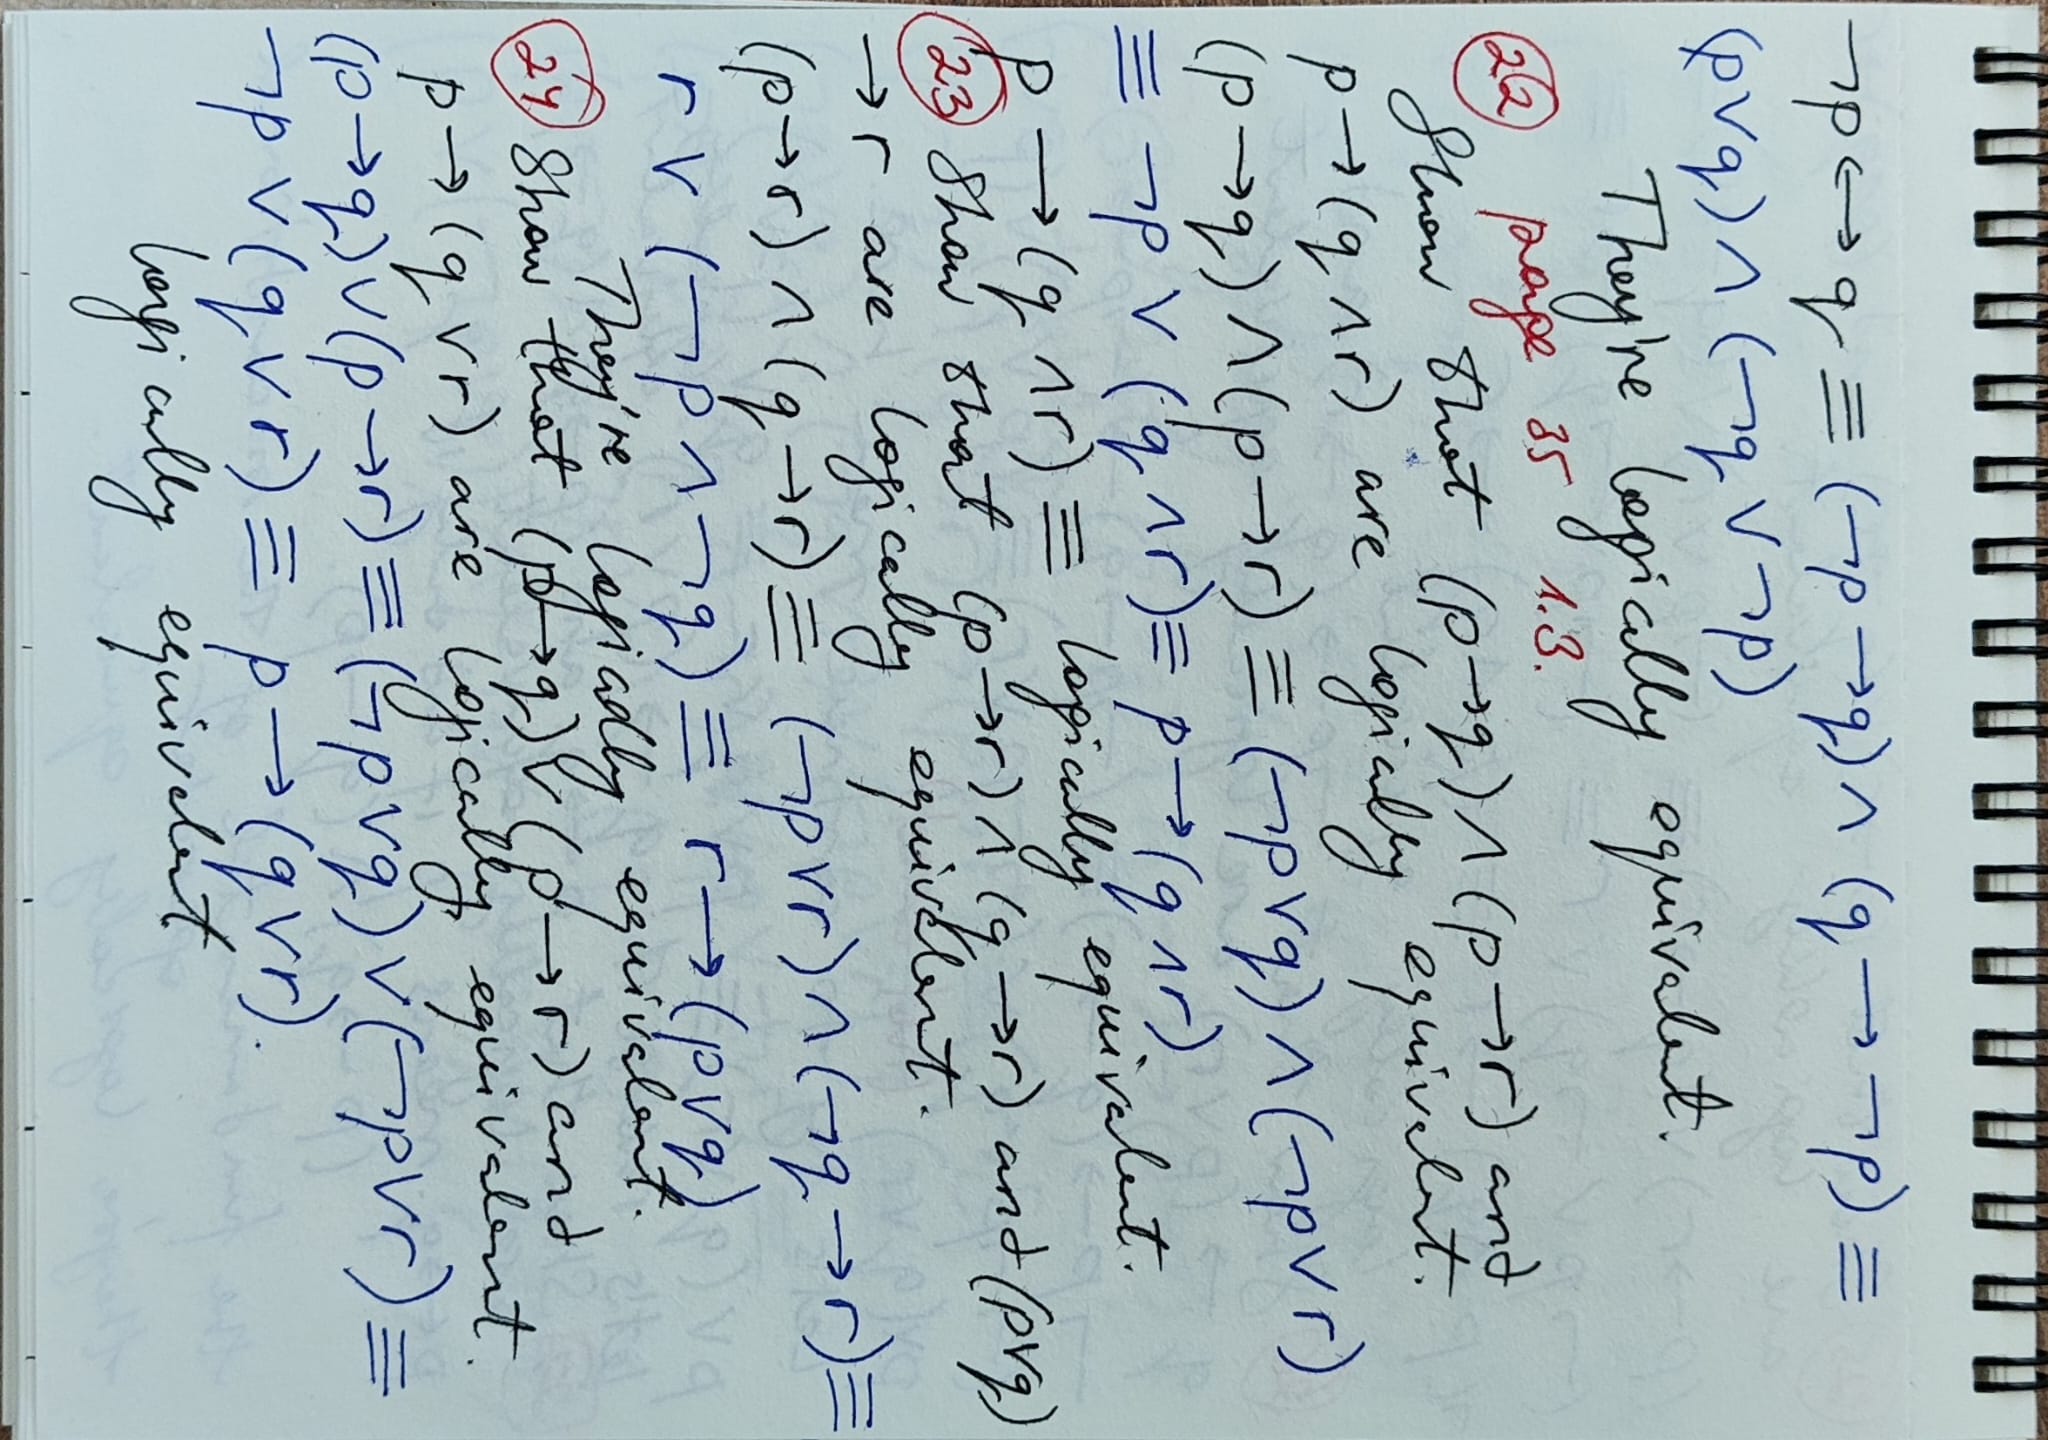 ¬p ↔ q ≡ (¬p → q) ∧ (q → ¬p) ≡
(p ∨ q) ∧ (¬q ∨ ¬p)
They're logically equivalent.
22 page 35 1.3.
Show that (p → q) ∧ (p → r) and
p → (q ∧ r) are logically equivalent.
(p → q) ∧ (p → r) ≡ (¬p ∨ q) ∧ (¬p ∨ r)
≡ ¬p ∨ (q ∧ r) ≡ p → (q ∧ r)
p → (q ∧ r) ≡ logically equivalent.
23 Show that (p → r) ∧ (q → r) and (p ∨ q)
→ r are logically equivalent.
(p → r) ∧ (q → r) ≡ (¬p ∨ r) ∧ (¬q → r) ≡
r ∨ (¬p ∧ ¬q) ≡ r → (p ∨ q)
They're logically equivalent.
24 Show that (p → q) ∨ (p → r) and
p → (q ∨ r) are logically equivalent.
(p → q) ∨ (p → r) ≡ (¬p ∨ q) ∨ (¬p ∨ r) ≡
¬p ∨ (q ∨ r) ≡ p → (q ∨ r).
logically equivalent